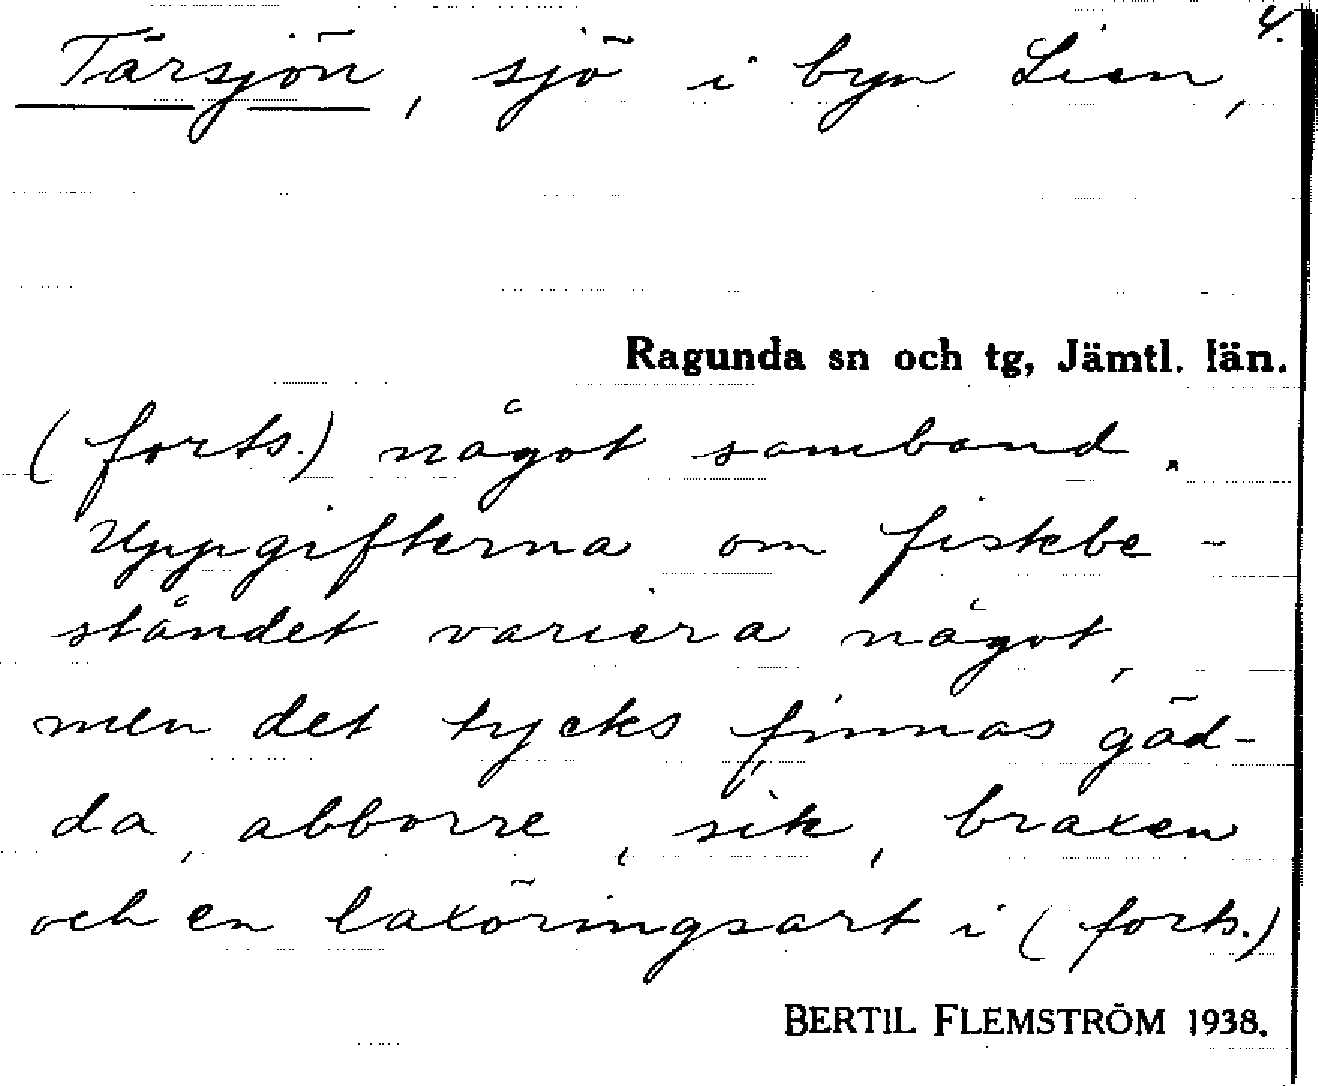 4.
Tärsjön, sjö i byn Lien,
Ragunda sn och tg, Jämtl. län.
(forts.) något samband.
Uppgifterna om fiskbe-
ståndet variera något,
men det tycks finnas gäd-
da, abborre, sik, braxen
och en laxöringsart i (forts.)
BERTIL FLEMSTRÖM 1938.